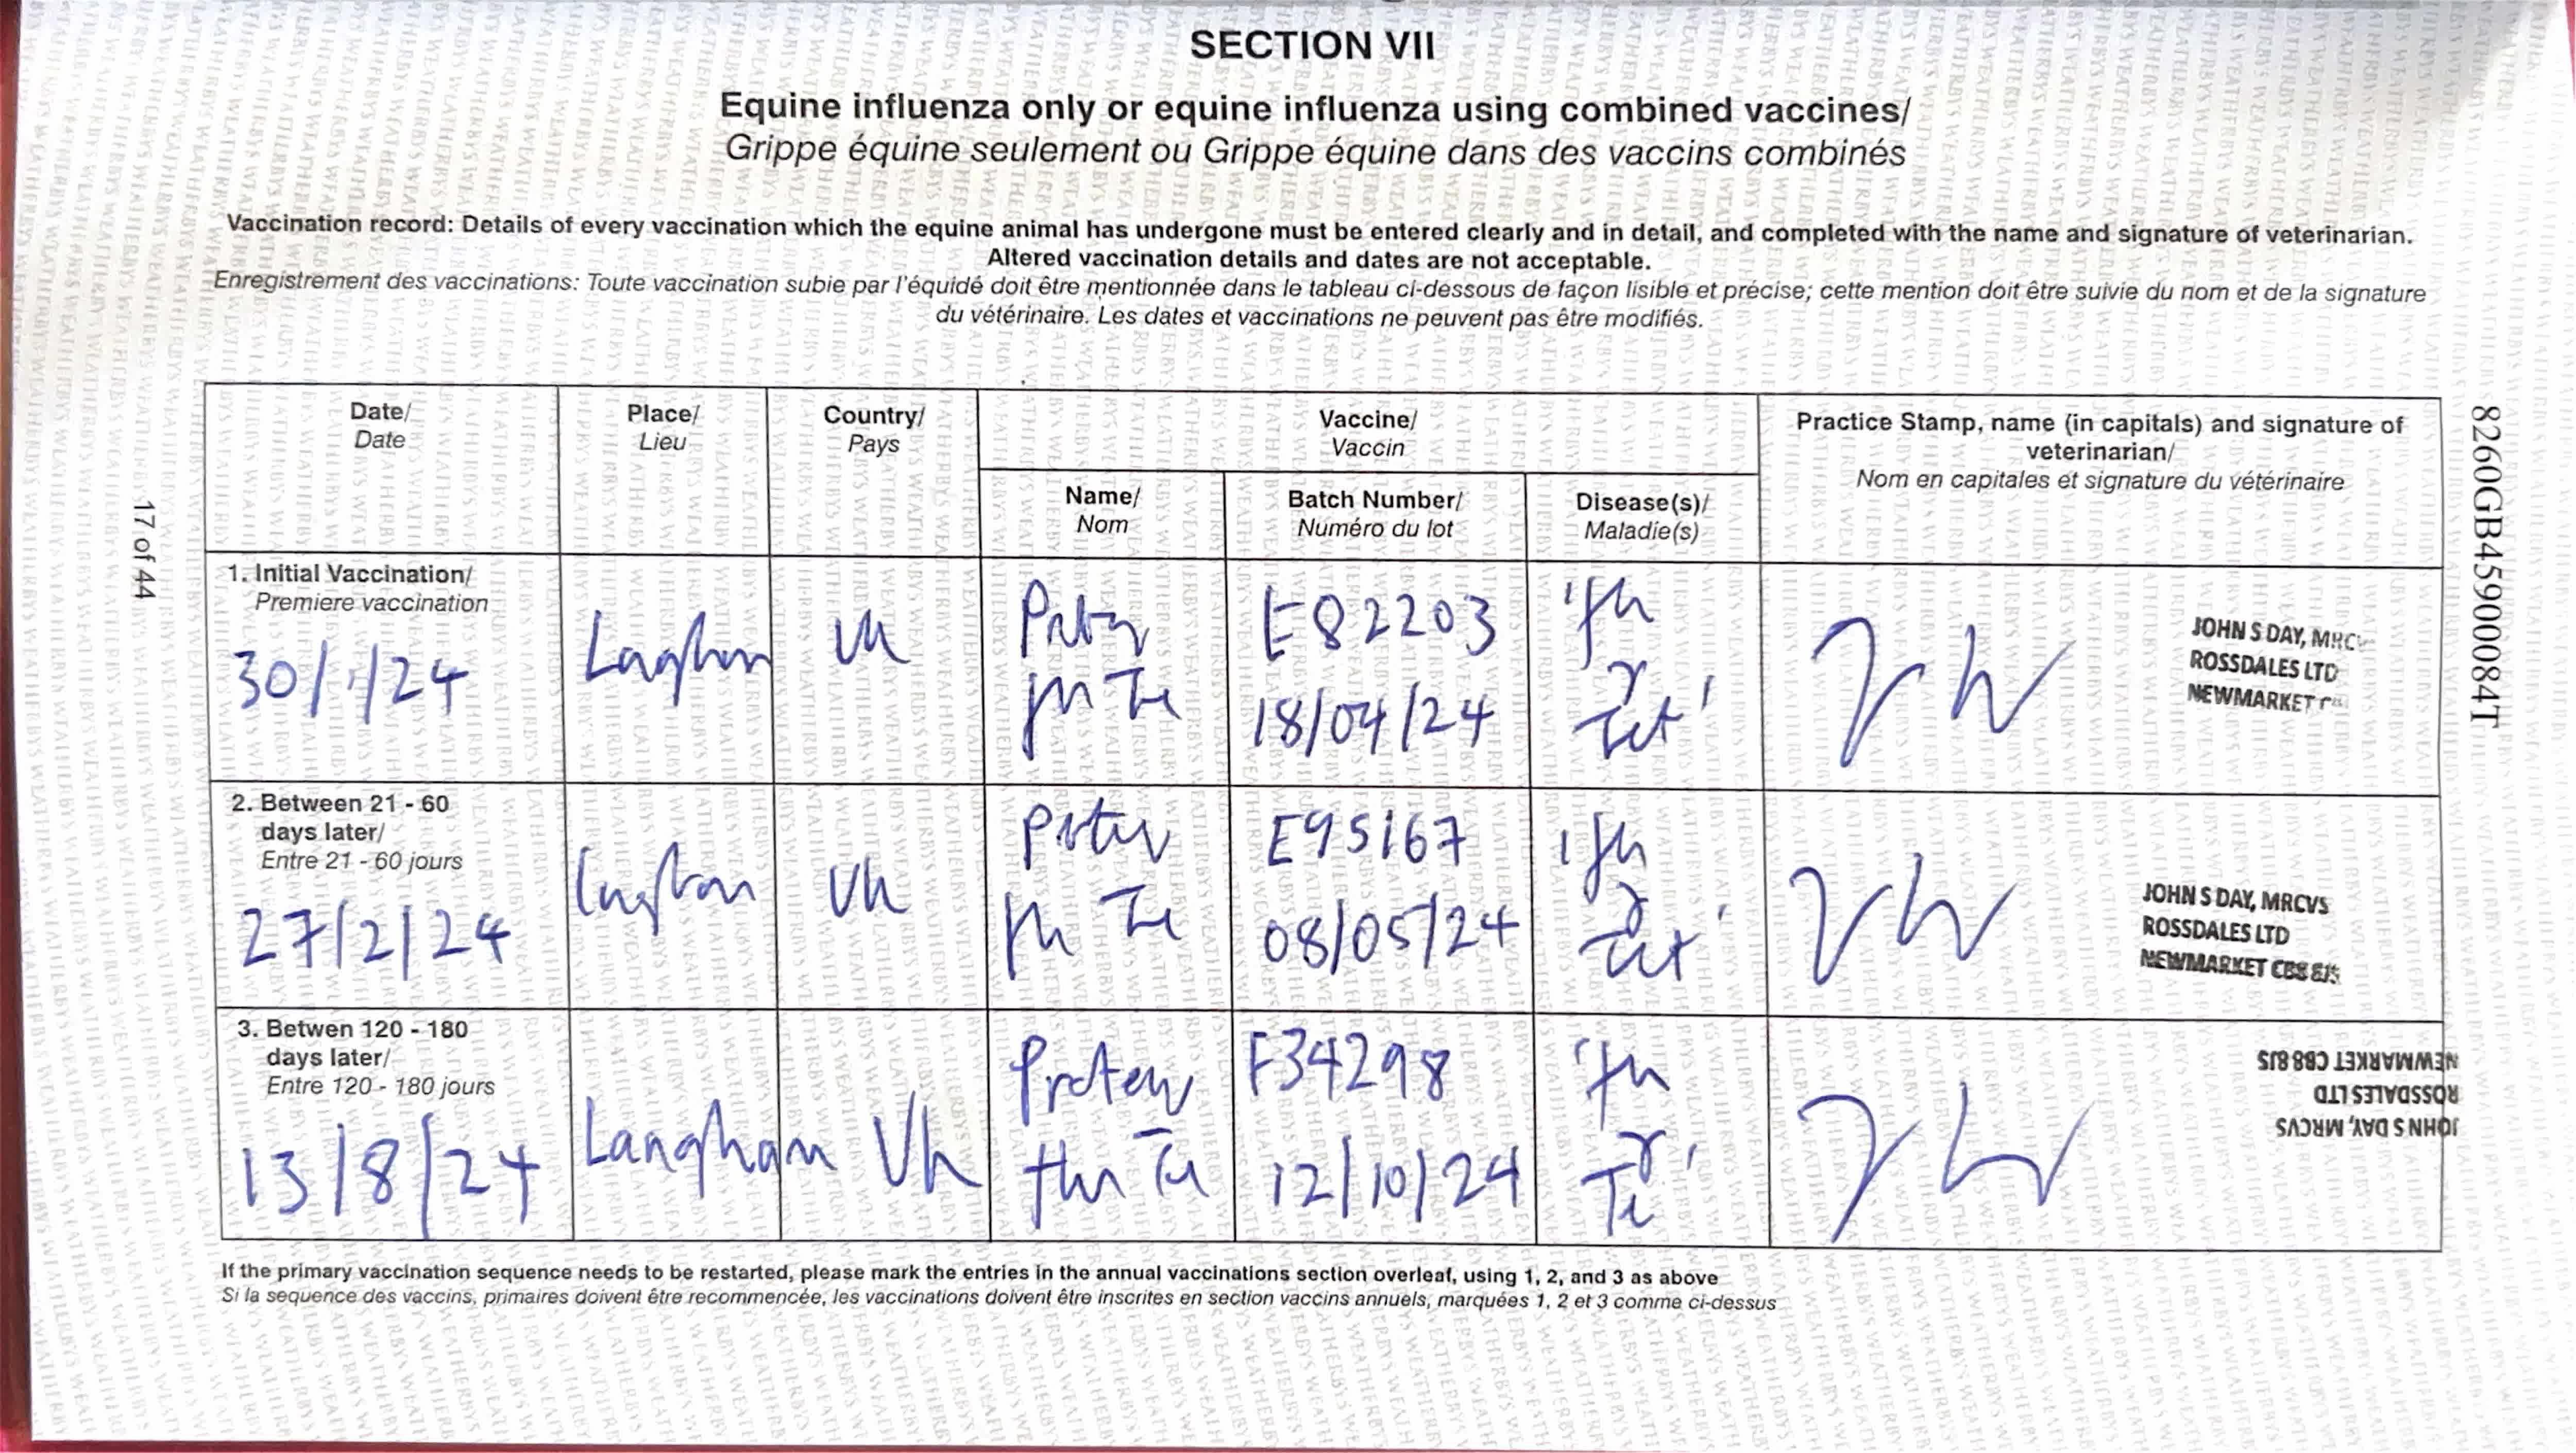 SECTION VII
Equine influenza only or equine influenza using combined vaccines/
Grippe équine seulement ou Grippe équine dans des vaccins combinés
Vaccination record: Details of every vaccination which the equine animal has undergone must be entered clearly and in detail, and completed with the name and signature of veterinarian.
Altered vaccination details and dates are not acceptable.
Enregistrement des vaccinations: Toute vaccination subie par l'équidé doit être mentionnée dans le tableau ci-dessous de façon lisible et précise; cette mention doit être suivie du nom et de la signature
du vétérinaire. Les dates et vaccinations ne peuvent pas être modifiés.
Date/
Date
Place/
Lieu
Country/
Pays
Vaccine/
Vaccin
Name/
Nom
Batch Number/
Numéro du lot
Disease(s)/
Maladie(s)
Practice Stamp, name (in capitals) and signature of
veterinarian/
Nom en capitales et signature du vétérinaire
1. Initial Vaccination/
Premiere vaccination
30/1/24
UK
E82203
18/04/24
Tet
JOHN S DAY, MRCV
ROSSDALES LTD
NEWMARKET
2. Between 21 - 60
days later/
Entre 21 - 60 jours
27/2/24
UK
E95167
08/05/24
Tet
JOHN S DAY, MRCVS
ROSSDALES LTD
NEWMARKET CB8 8JS
3. Betwen 120 - 180
days later/
Entre 120 - 180 jours
13/8/24
Langham
UK
F34298
12/10/24
JOHN S DAY, MRCVS
ROSSDALES LTD
NEWMARKET CB8 8JS
If the primary vaccination sequence needs to be restarted, please mark the entries in the annual vaccinations section overleaf, using 1, 2, and 3 as above
Si la sequence des vaccins, primaires doivent être recommencée, les vaccinations doivent être inscrites en section vaccins annuels, marquées 1, 2 et 3 comme ci-dessus
17 of 44
8260GB459000084T